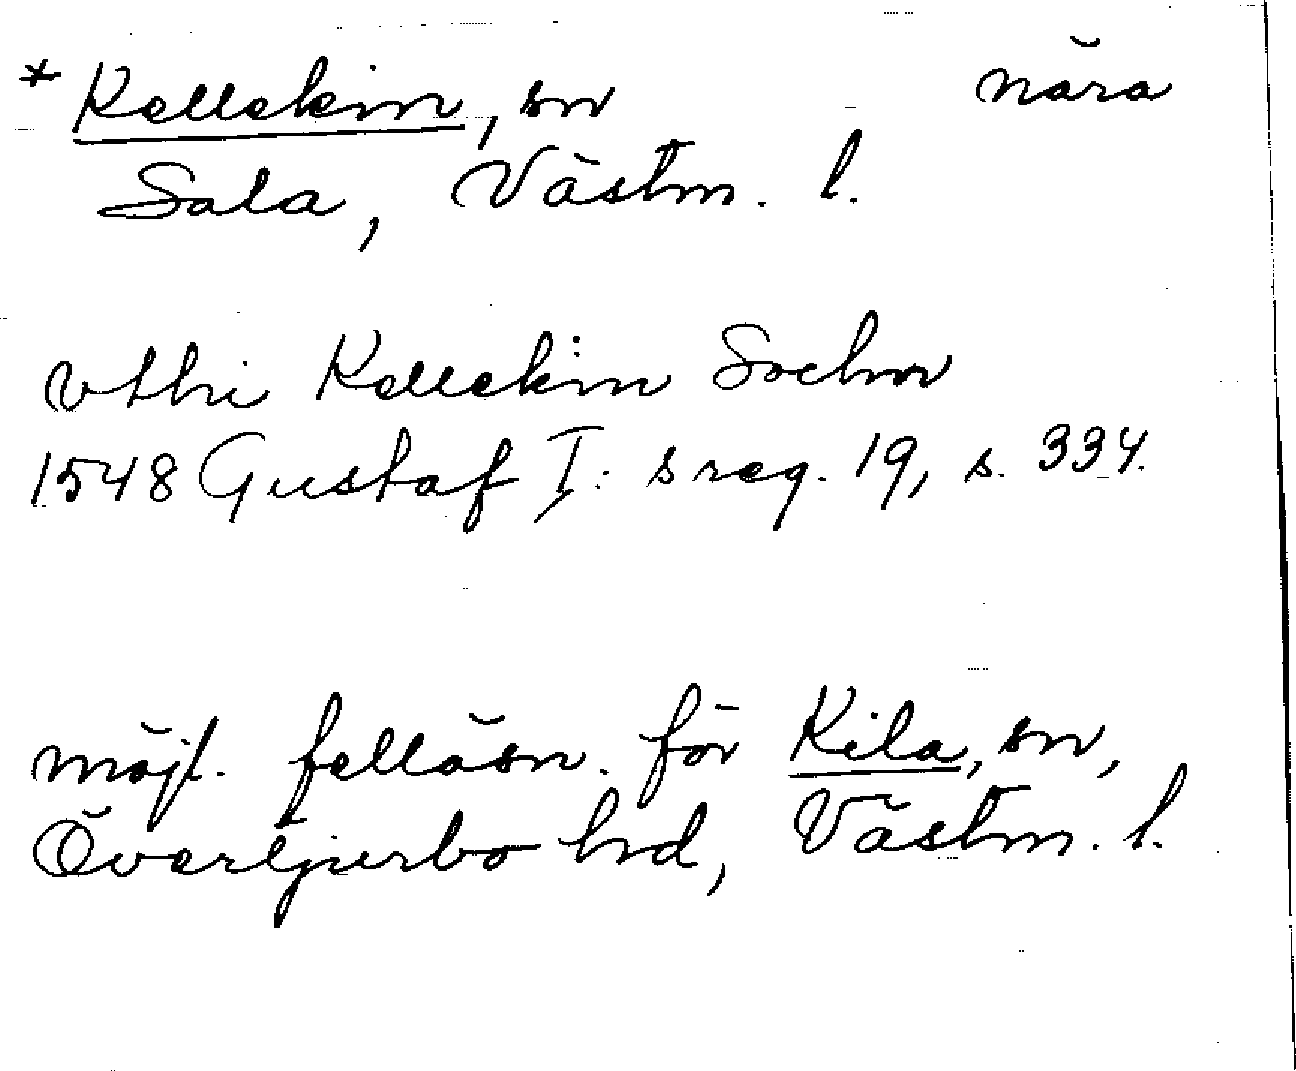 * Kellekim, sn nära
Sala, Västm. l.
vthi Kellekim Sochn
1548 Gustaf I: s reg. 19, s. 334.
möjl. felläsn. för Kila, sn,
Övertjurbo hd, Västm. l.